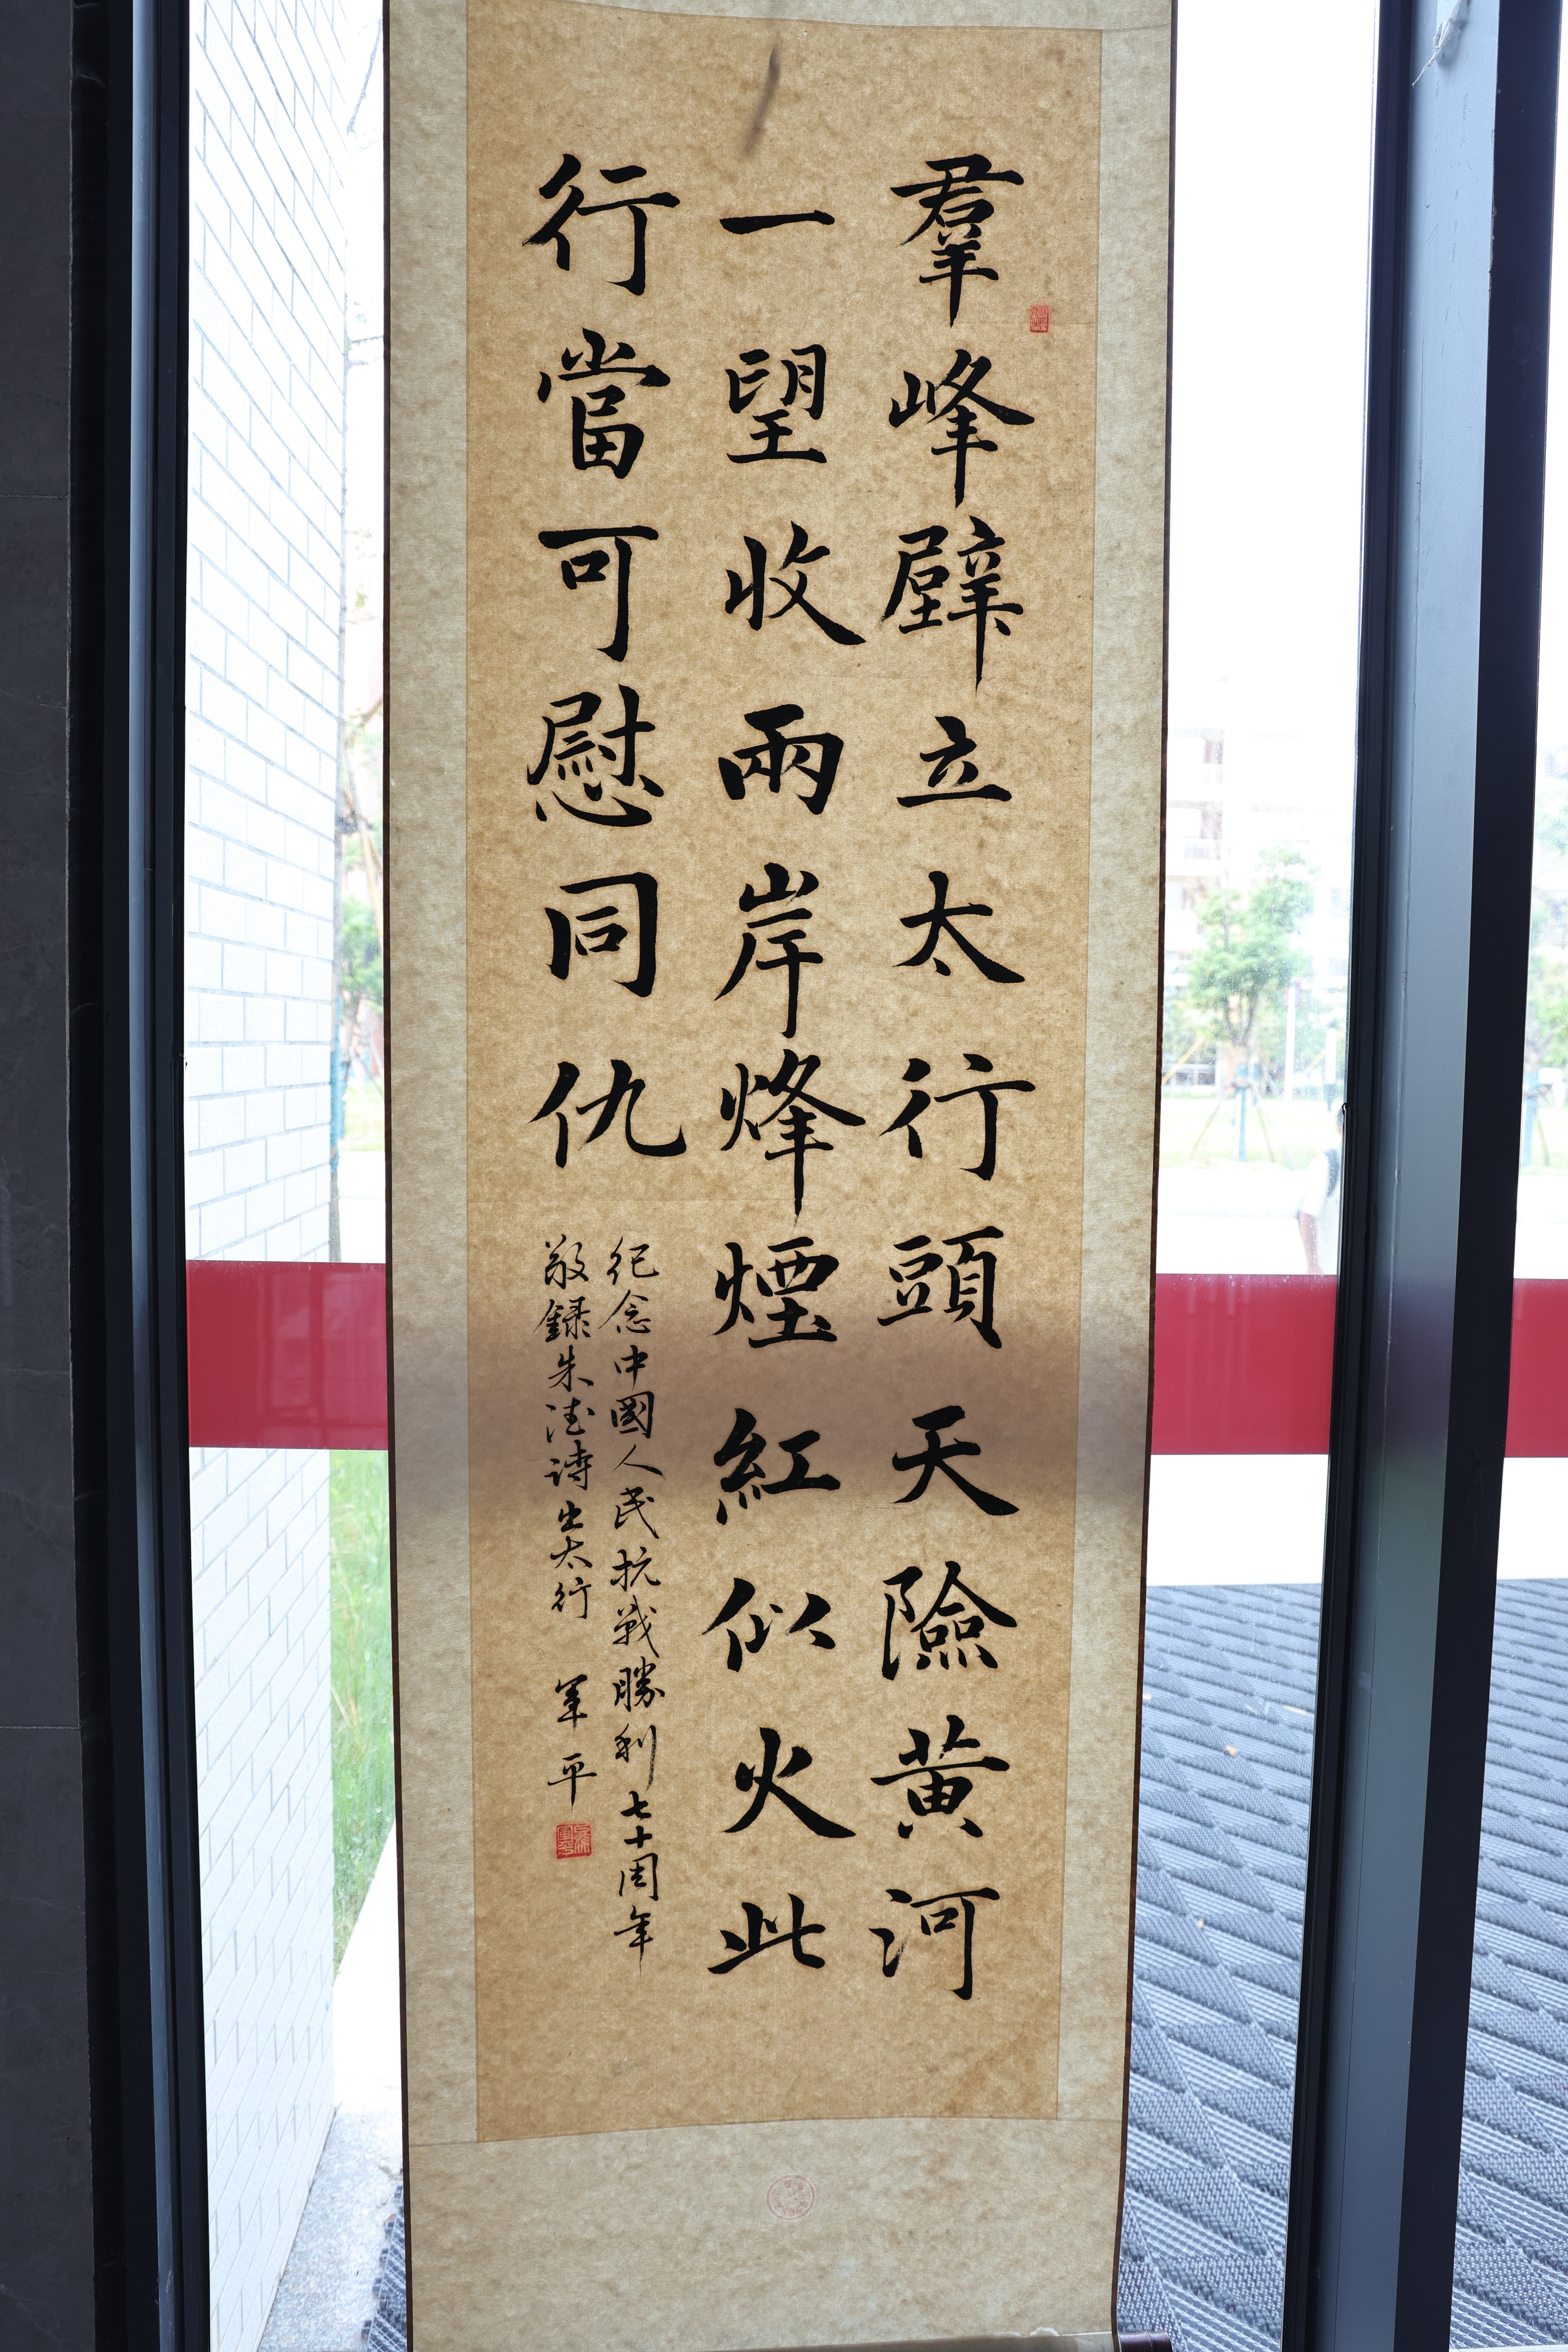 羣峰壁立太行頭天險黄河
一望收兩岸烽煙紅似火此
行當可慰同仇
纪念中國人民抗戰勝利七十周年
敬録朱德詩出太行 軍平